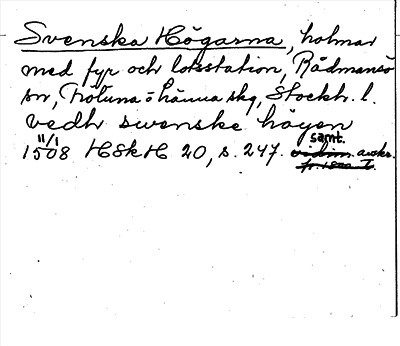 Svenska Högarna, holmar
med fyr och lotsstation, Rådmansö
sn, Frötuna o Länna skg, Stockh. l.
vedh swenske högen
11/1 samt.
1508 HSkH 20, s. 247. vidim. avskr.
fr. 1500 t.